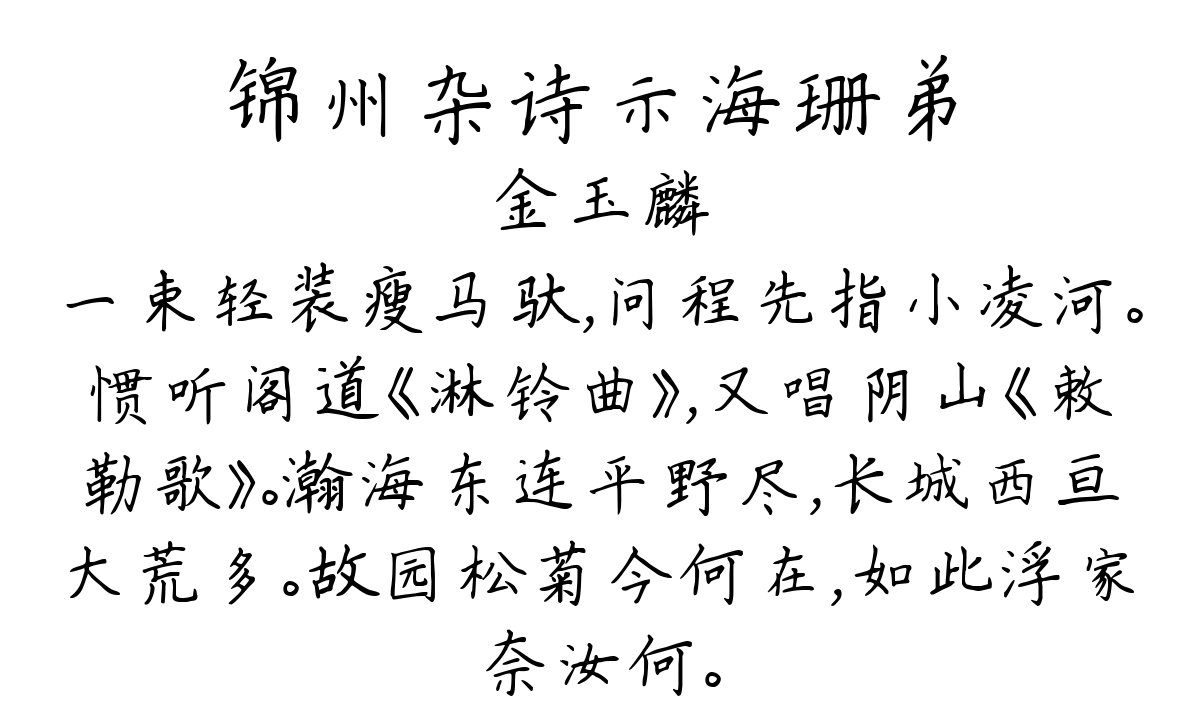 锦州杂诗示海珊弟
金玉麟
一束轻装瘦马驮,问程先指小凌河。
惯听阁道《淋铃曲》,又唱阴山《敕
勒歌》。瀚海东连平野尽,长城西亘
大荒多。故园松菊今何在,如此浮家
奈汝何。